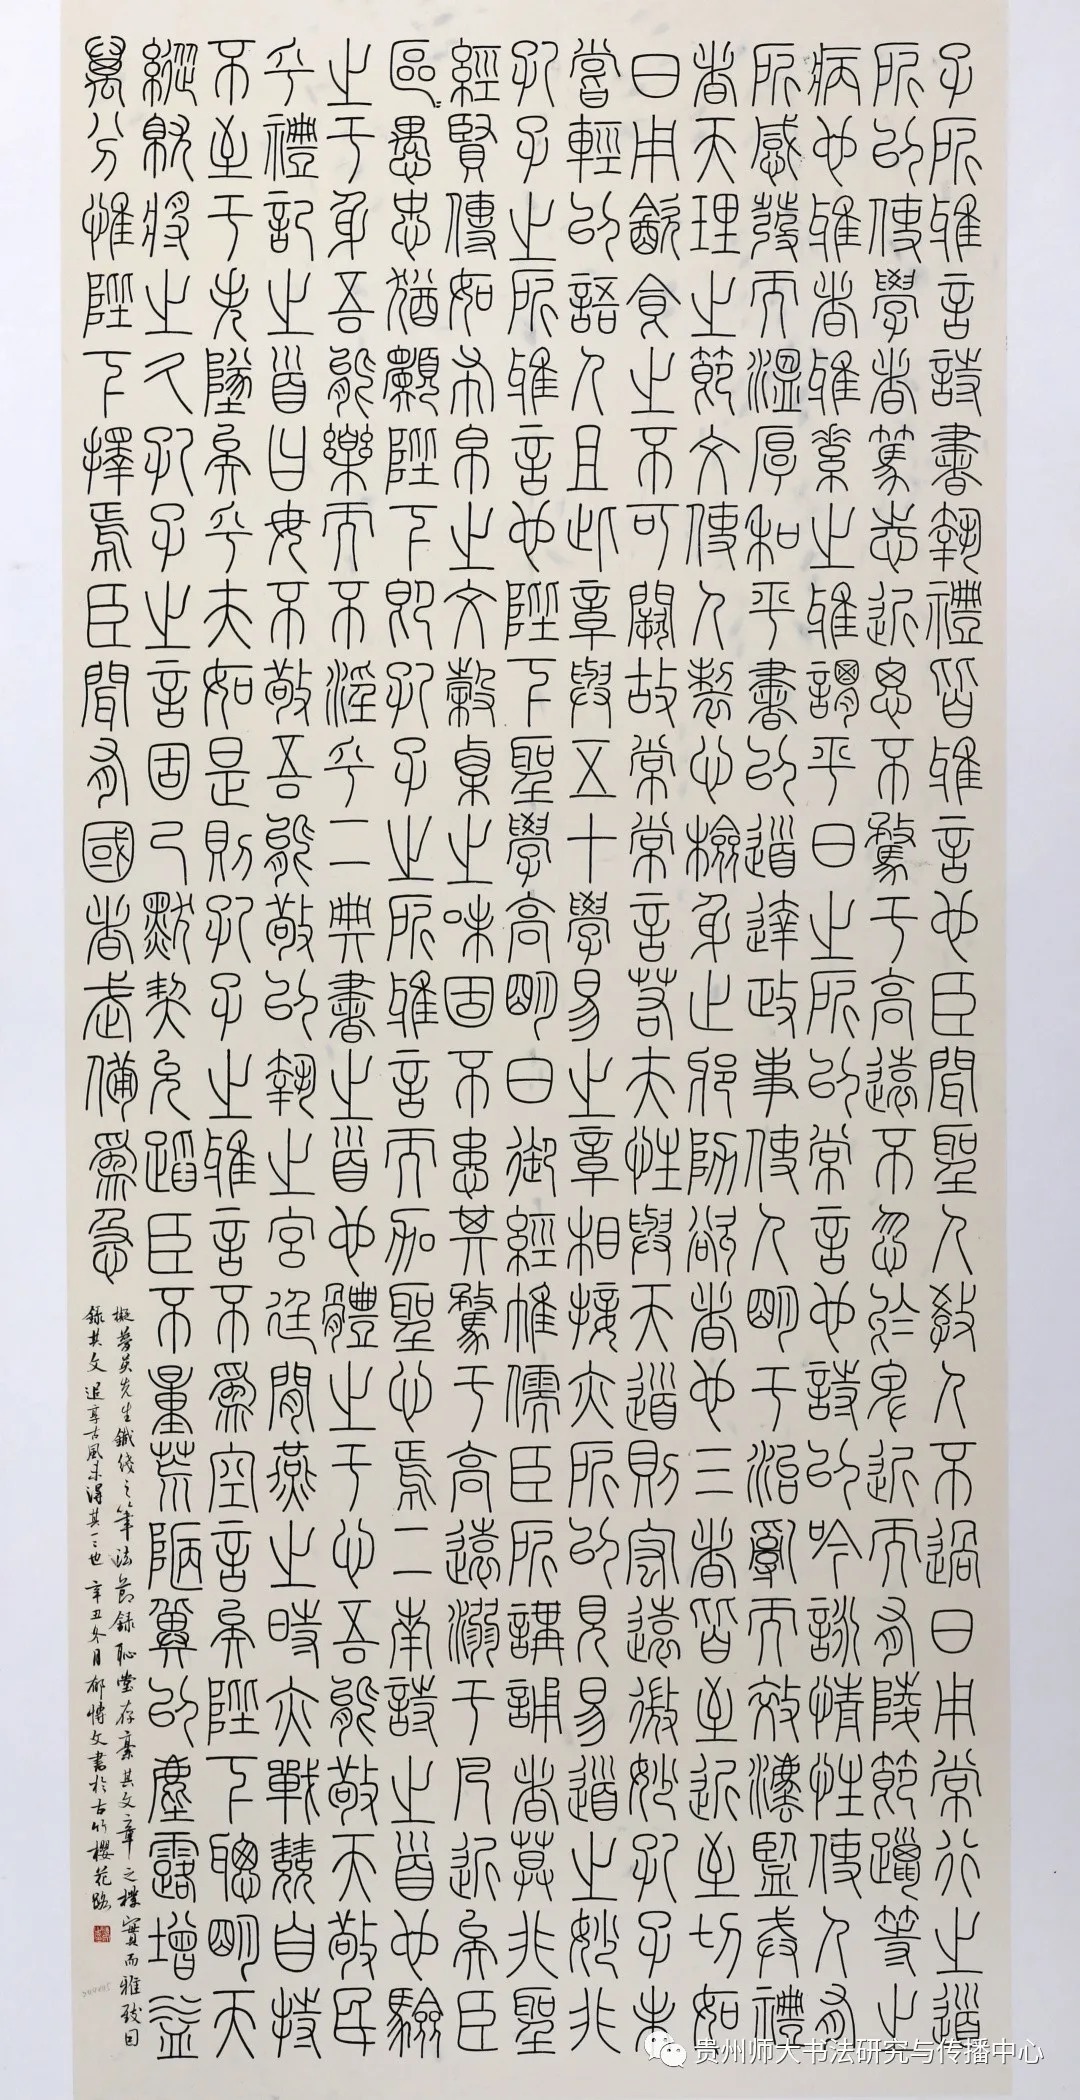 子所雅言詩書執禮皆雅言也臣聞聖人教人不過日用常行之道
所以使學者篤志近思不騖于高遠不忽於卑近而有陵節躐等之
病也雅者雅素之雅謂平日之所以常言也詩以吟詠情性使人有
所感發而溫厚和平書以道達政事使人明于治亂而效法監戒禮
者天理之節文使人製心檢身止邪防欲者也三者皆至近至切如
日用飲食之不可闕故常常言若夫性與天道則宏遠微妙孔子未
嘗輕以語人且此章與五十學易之章相接亦所以見易道之妙非
孔子之所雅言也陛下聖學高明日御經帷儒臣所講誦者莫非聖
經賢傳如布帛之文穀粟之味固不患其騖于高遠溺于凡近矣臣
區區愚忠猶願陛下即孔子之所雅言而加聖心焉二南詩之首也驗
之于身吾能樂而不淫乎二典書之首也體之于心吾能敬天敬民
乎禮記之首曰毋不敬吾能敬以執之宮廷閒燕之時亦戰兢自持
不至于失墜矣乎夫如是則孔子之雅言不爲空言矣陛下聰明天
縱就將之久孔子之言固已默契允蹈臣不量荒陋冀以塵露增益
萬分惟陛下擇焉臣聞有國者武備爲急
擬夢英先生鐵線之筆法節錄恥堂存稾其文章之樸實而雅致因
錄其文追享古風未得其一二也辛丑冬月郁博文書於古竹櫻花路
贵州师大书法研究与传播中心